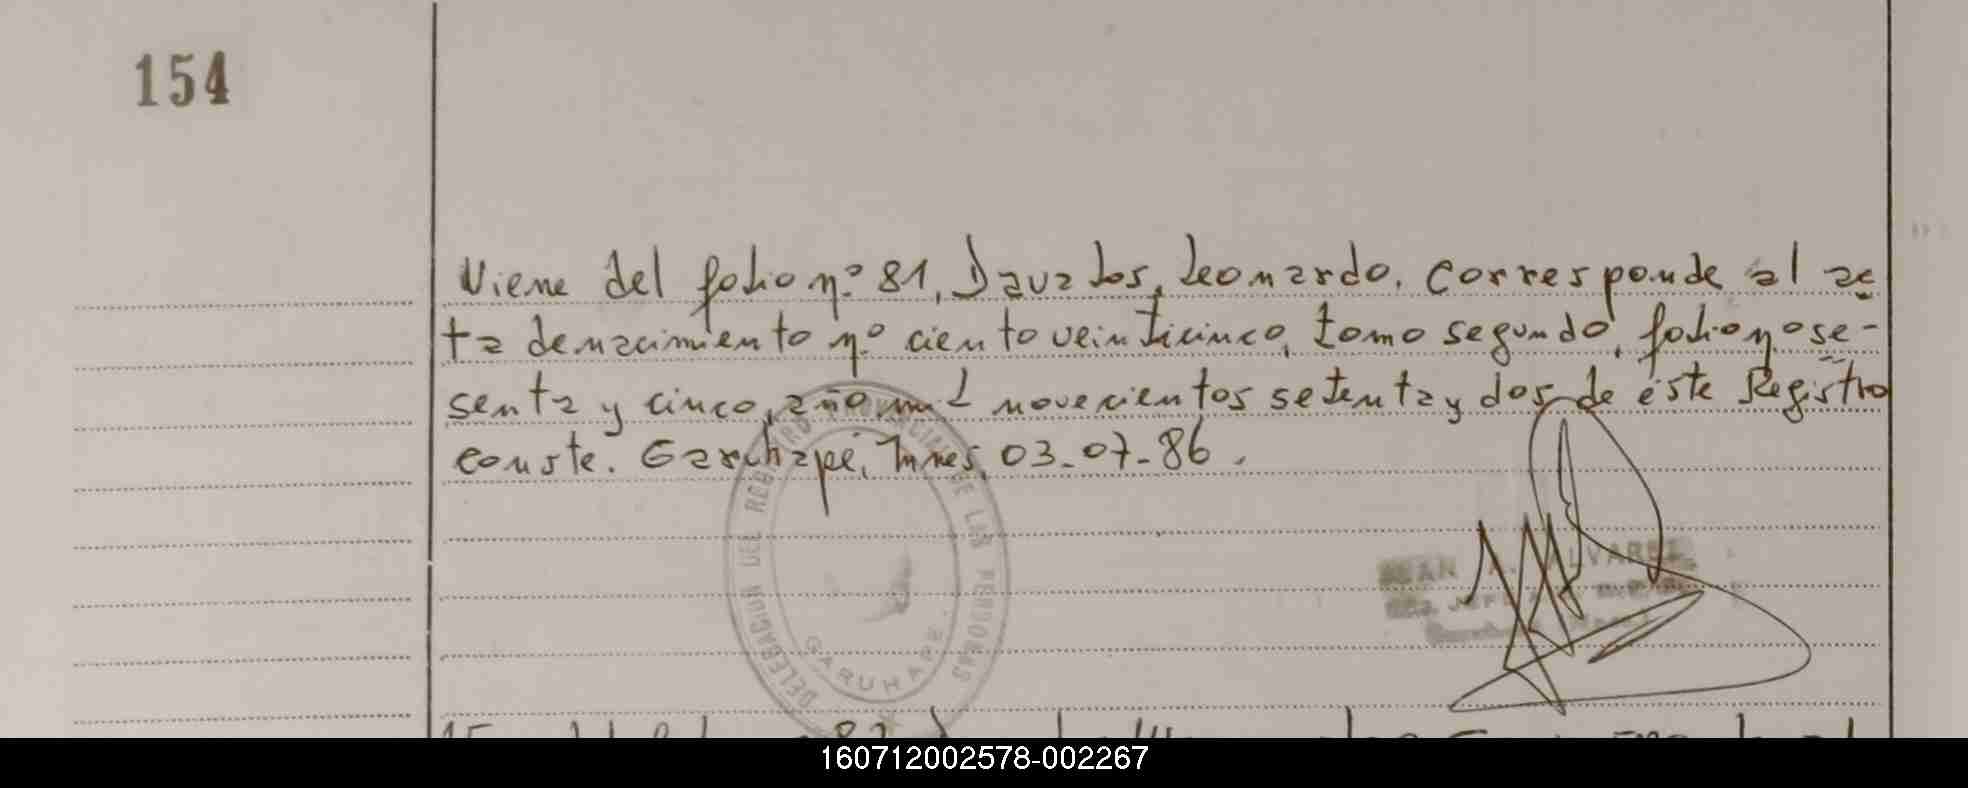 154
Viene del folio n.º 81, Davalos, Leonardo. Corresponde al ac
ta de nacimiento nº ciento veinticinco, tomo segundo, folio nº se-
senta y cinco, año mil novecientos setenta y dos de éste Registro
conste. Garuhapé, Mnes, 03-07-86.
DELEGACION DEL REGISTRO PROVINCIAL DE LAS PERSONAS
GARUHAPE.
JUAN A. ALVAREZ
160712002578-002267